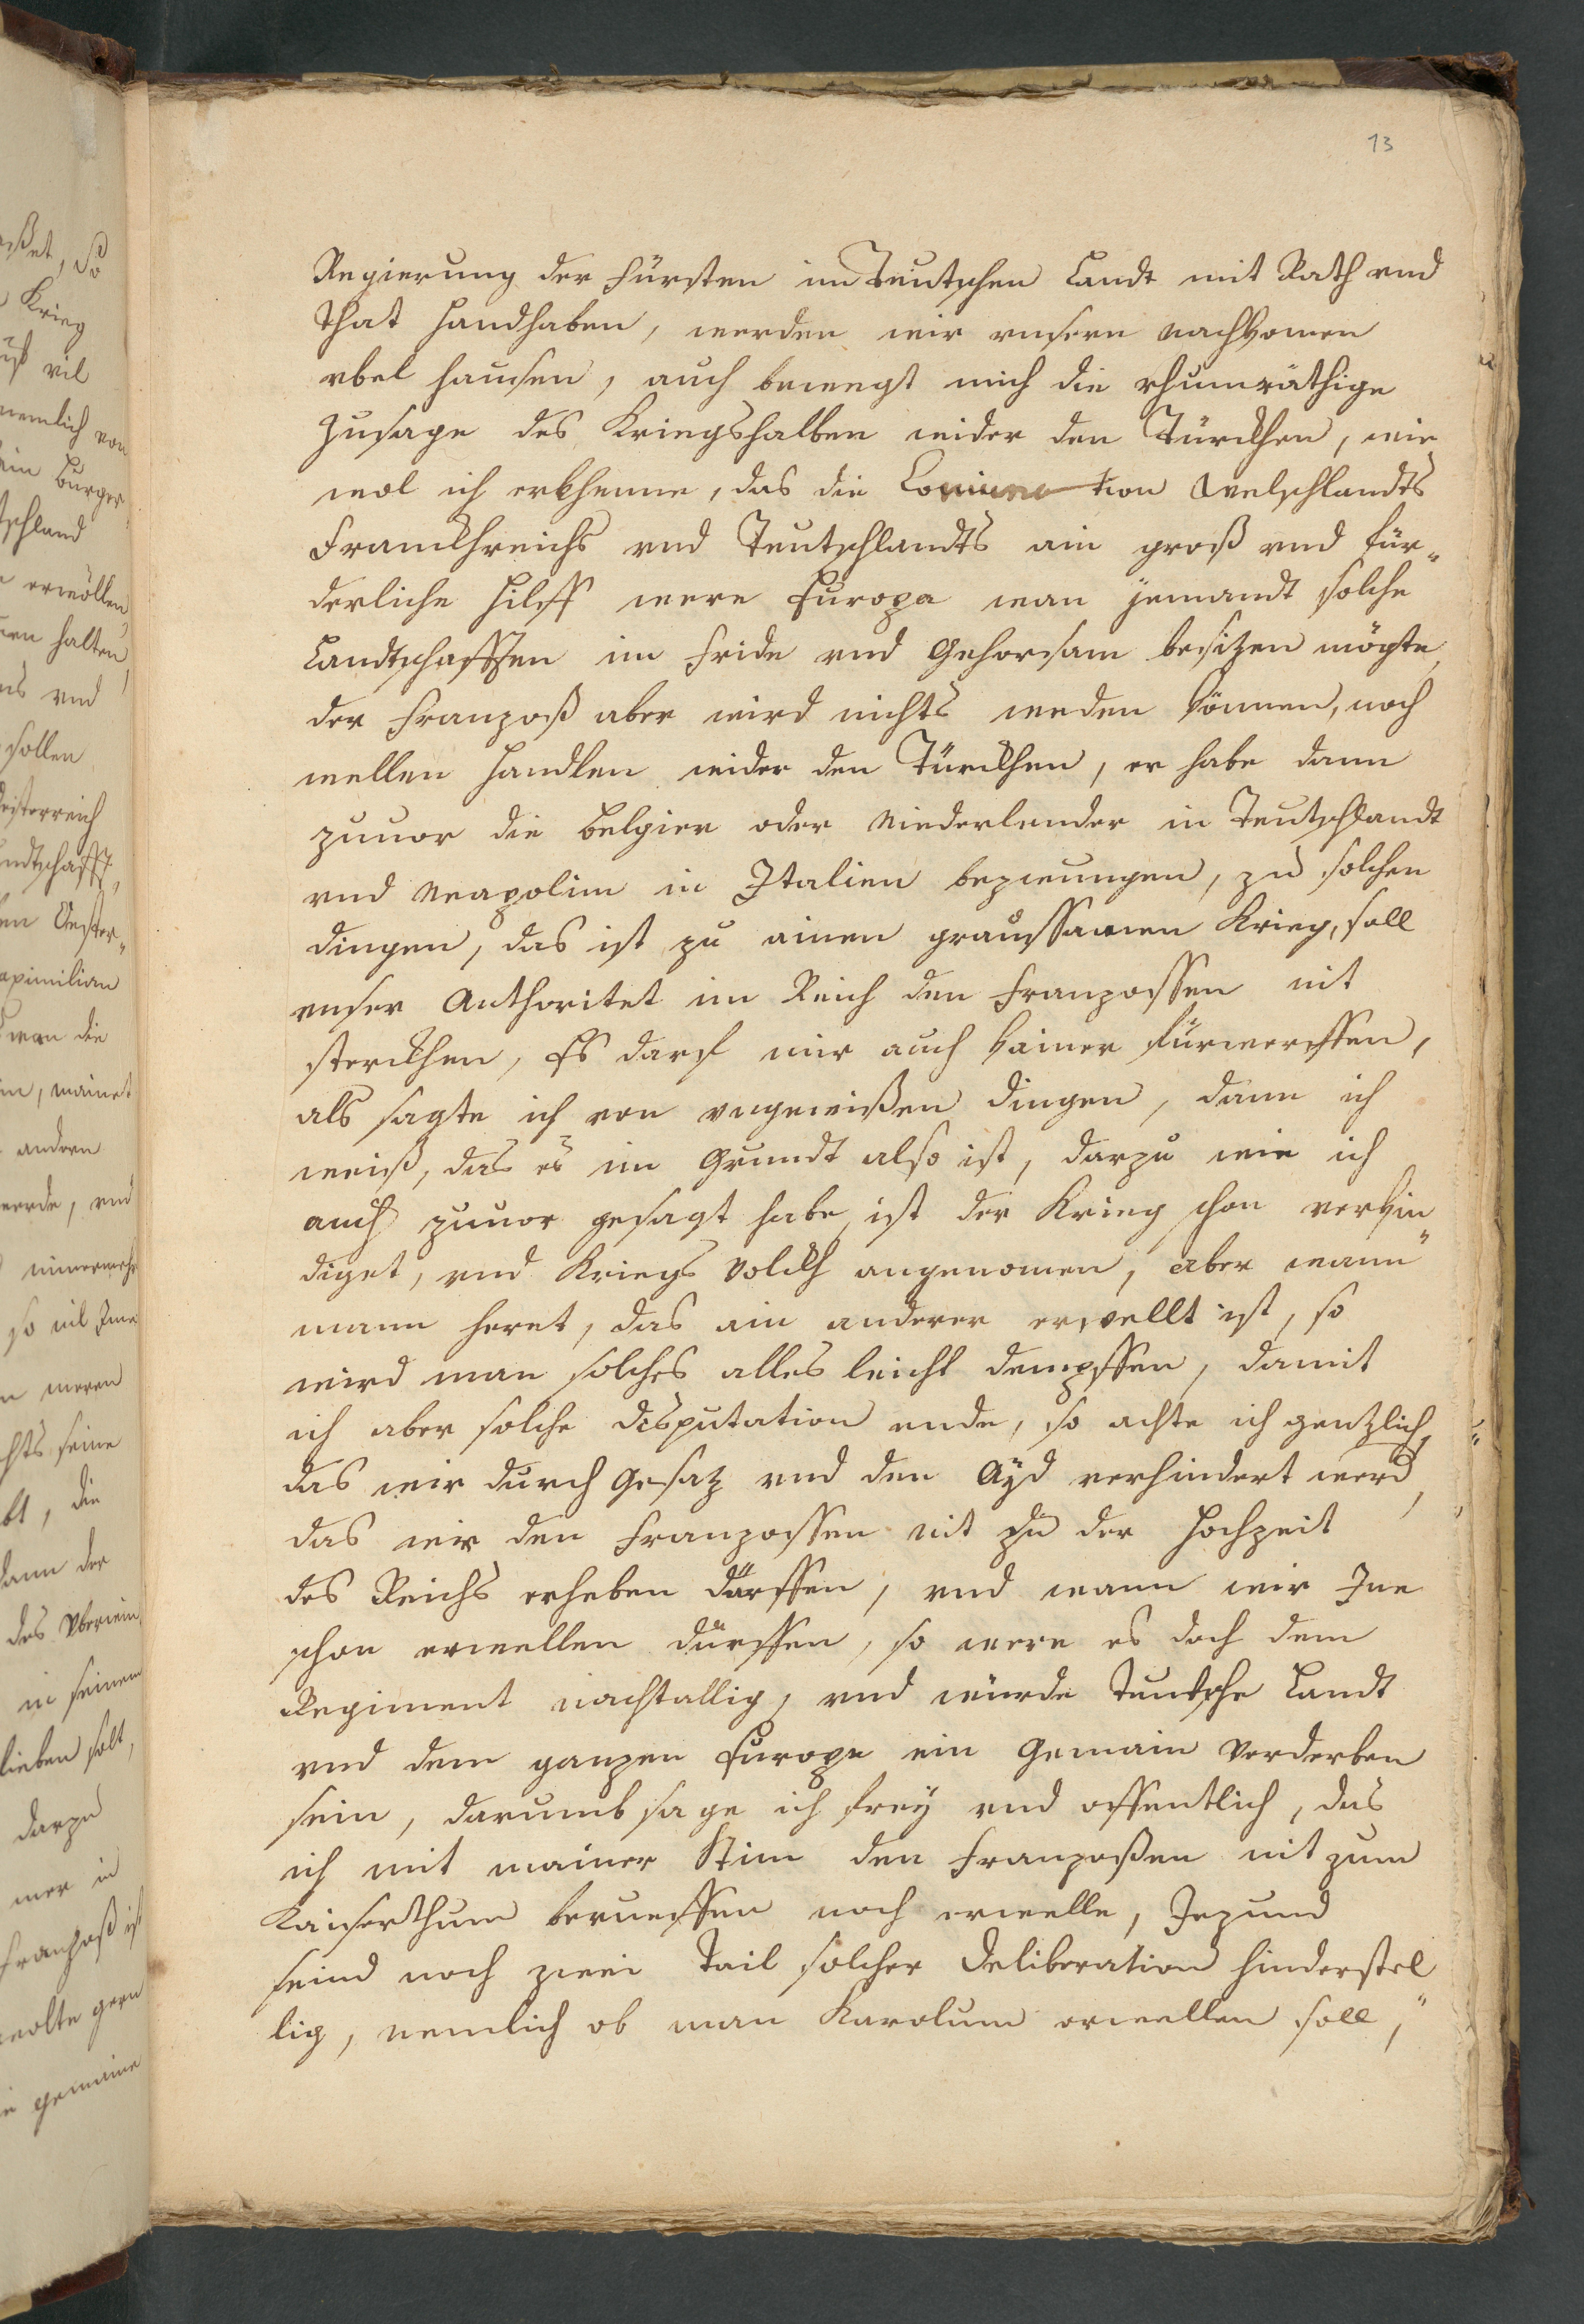 13
Regierung der Fürsten im Teutschen Landt mit Rath vnd
That handhaben, werden wir vnsern nachkomen
vbel hausen, auch bewegt mich die rhumräthige
Zusage des Kriegshalben wider den Türckhen, wie
wol ich erkhenne, das die tion Welschlandts
Franckhreichs vnd Teutschlandts ain groß vnd für„
derliche Hilff were Europa wan jemandt solche
Landtschafften im Fride vnd Gehorsam besitzen mögte,
der Franzoß aber wird nichts reden können, noch
wellen handlen wider den Türckhen, er habe dann
zuuor die Belgier oder Niederlender in Teutschlandt
vnd Neapolim in Italien bezwungen, zu solchen
dingen, das ist zu ainen graussamen Krieg, soll
vnser Authoritet im Reich den Franzossen nit
sterckhen, Es darf mir auch kainer fürwerffen,
als sagte ich von vngewißen dingen, dann ich
weiß, das es im Grundt also ist, darzu wie ich
auch zuuor gesagt habe, ist der Krieg schon verkün„
diget, vnd Kriegs Volckh angenomen, aber wann
mann heret, das ain anderer erwellt ist, so
wird man solches alles leicht dempffen, damit
ich aber solche disputation ende, so achte ich gentzlich,
das wir durch Gesatz vnd den Ayd verhindert werd,
das wir den Franzossen nit zu der Hochzeit
des Reichs erheben dürffen, vnd wann wir Jne
schon erwellen dürffen, so were es doch dem
Regiment nachtallig, vnd würde Teutsche Landt
vnd dem ganzen Europe ein Gemain Verderben
sein, darumb sage ich frey vnd offentlich, das
ich mit mainer Stim den Franzoßen nit zum
Kaiserthum berueffen noch erwelle, Jezund
seind noch zwei Tail solcher Deliberation hinderstel„
lig, nemlich ob man Karolum erwellen soll,